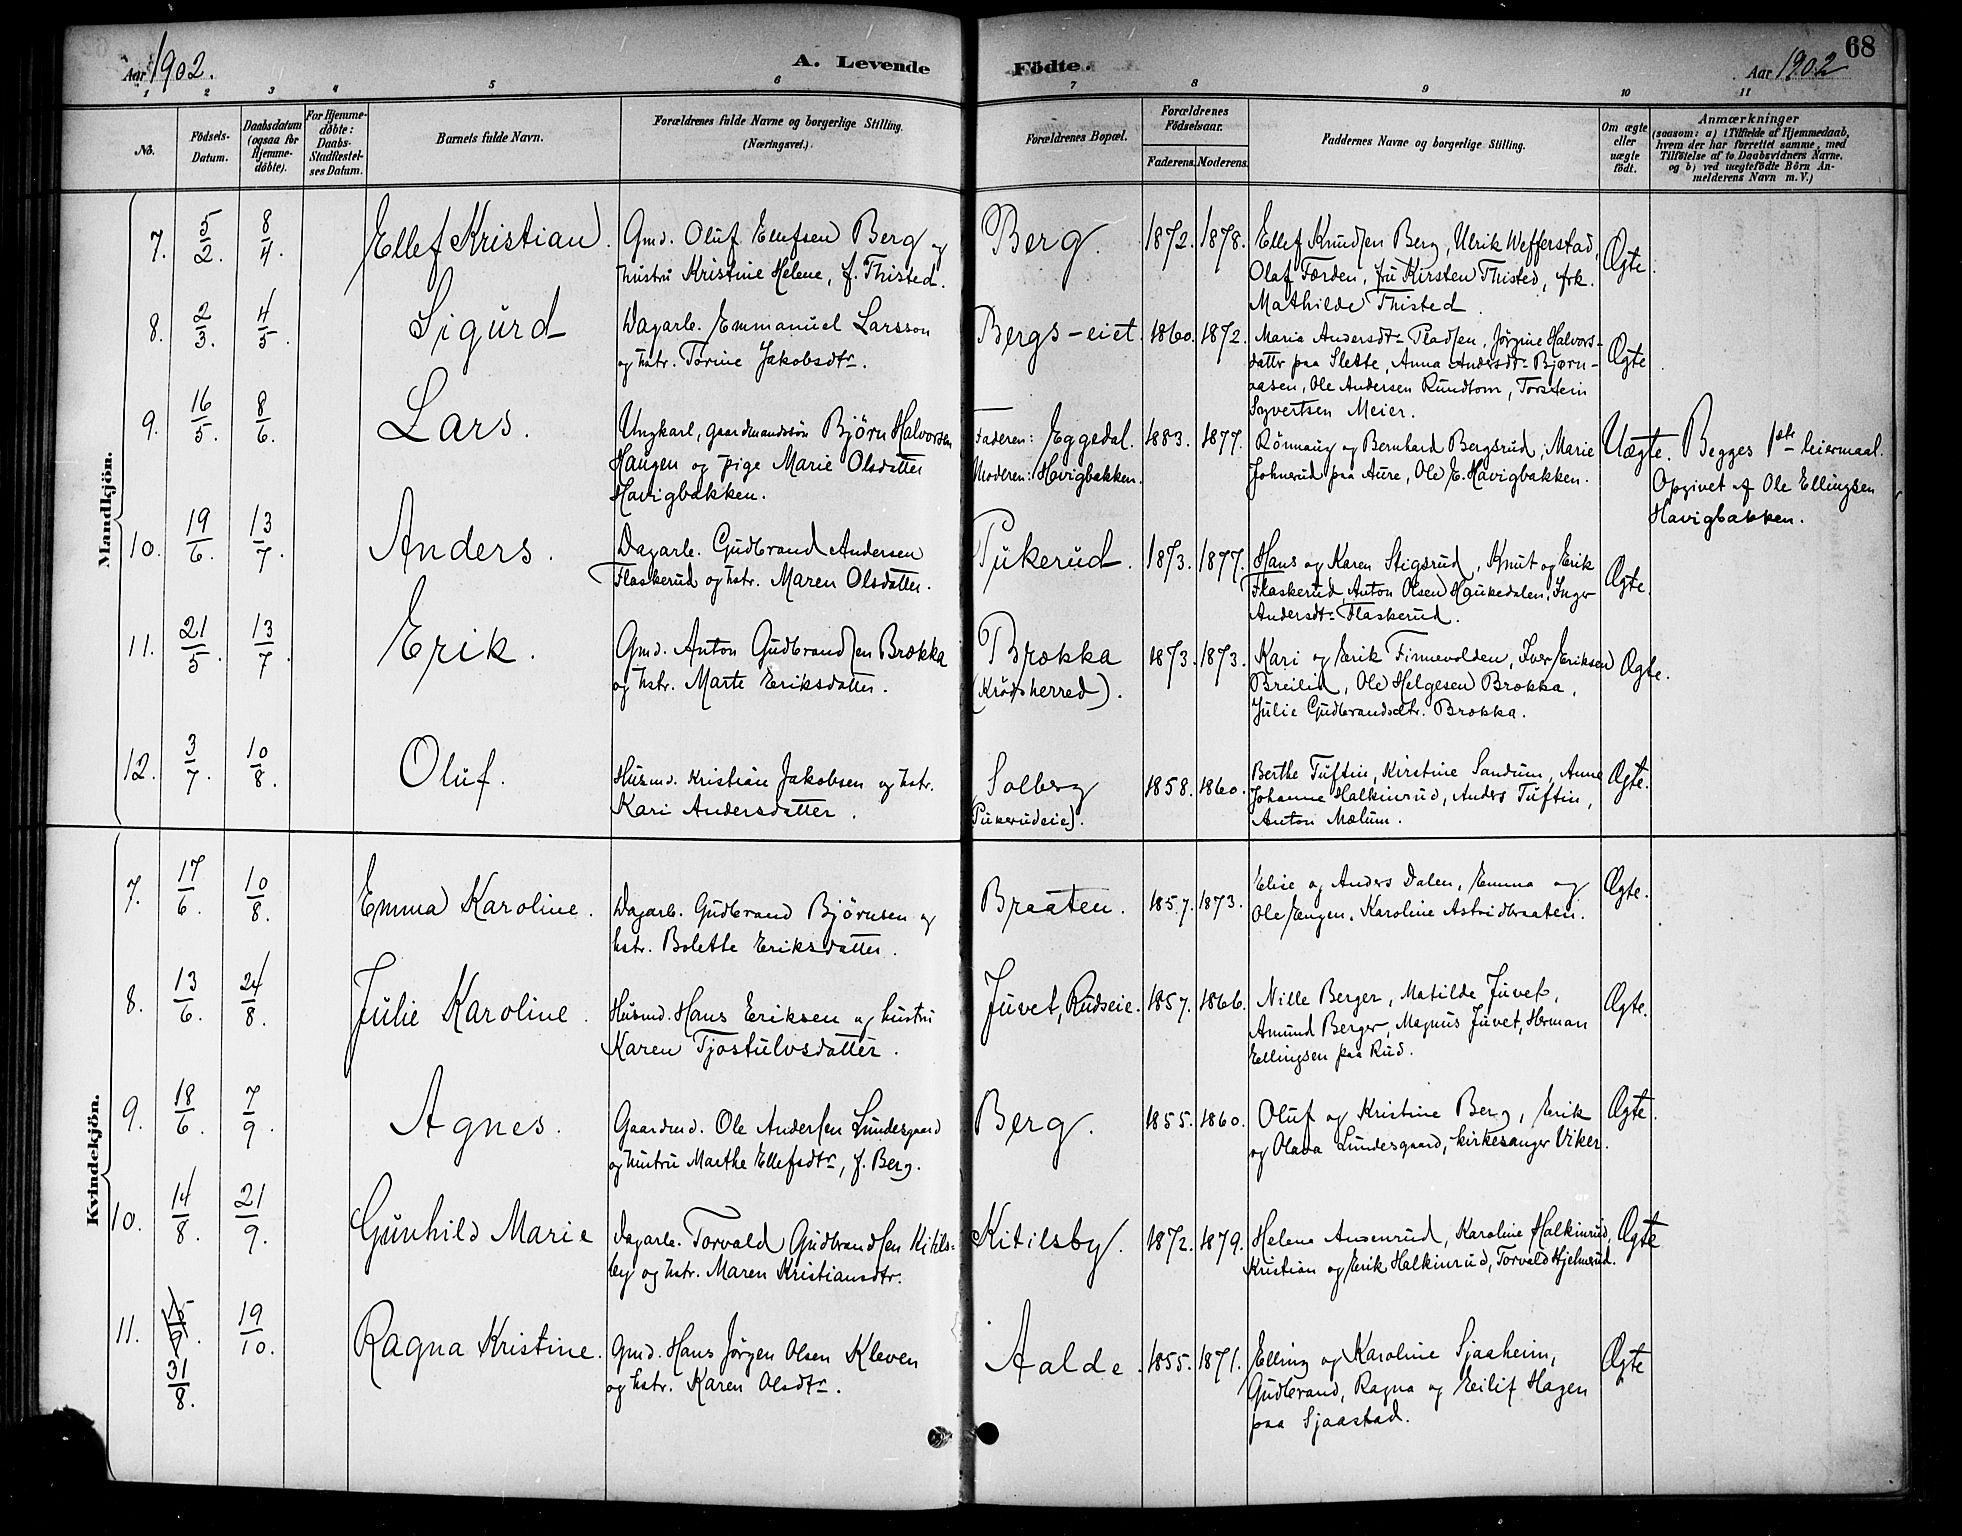 Aar 1902.
A. Levende
Födte.
Aar 1902
68
1 2 3 4 5 6 7 8 9 10 11
No.
Födsels-Datum.
Daabsdatum (ogsaa for Hjemme-döbte).
For Hjemme-döbte: Daabs-Stadfæstel-ses Datum.
Barnets fulde Navn.
Forældrenes fulde Navne og borgerlige Stilling. (Næringsvei.)
Forældrenes Bopæl.
Forældrenes Födselsaar.
Faderens. Moderens.
Faddernes Navne og borgerlige Stilling.
Om ægte eller uægte födt.
Anmærkninger
(saasom: a) i Tilfælde af Hjemmedaab,
hvem der har forrettet samme, med
Tilföielse af to Daabsvidners Navne,
og b) ved uægtefödte Börn An-
melderens Navn m. V.)
Mandkjön.
7. 5/2. 8/4. Ellef Kristian. Gmd. Oluf Ellefsen Berg og
hustru Kristine Helene, f. Thisted.
Berg. 1872. 1878. Ellef Knudsen Berg, Ulrik Wefferstad,
Olaf Førden, fru Kirsten Thisted, frk.
Mathilde Thisted.
Ægte.
8. 2/3. 4/5. Sigurd Dagarb. Emmanuel Larsson
og hstr. Torine Jakobsdtr.
Bergs-eiet. 1860. 1872. Maria Andersdtr Pladsen, Jørgine Halvors-
datter paa Slette, Anna Andersdtr Bjørn-
aasen, Ole Andersen Rundtom, Torstein
Syvertsen Meier.
Ægte
9. 16/5. 8/6. Lars. Ungkarl, gaardmandssøn Björn Halvorsen
Haugen og pige Marie Olsdatter
Havigbakken.
Faderen: Eggedal.
Moderen: Havigbakken.
1883. 1877. Rönnaug og Bernhard Bergsrud, Marie
Johnsrud paa Aure, Ole E. Havigbakken.
Uægte. Begges 1ste leiermaal.
Opgivet af Ole Ellingsen
Havigbakken.
10. 19/6. 13/7. Anders. Dagarb. Gudbrand Andersen
Flaskerud og hstr. Maren Olsdatter.
Pukerud. 1873. 1877. Hans og Karen Stigsrud, Knut og Erik
Flaskerud, Anton Olsen Haukedalen, Inger
Andersdtr Flaskerud.
Ægte.
11. 21/5. 13/7. Erik. Gmd. Anton Gudbrandsen Brøkka
og hstr. Marte Eriksdatter.
Brøkka
(Krødsherred).
1873. 1873. Kari og Erik Finnevolden, Iver Eriksen
Breilid, Ole Helgesen Brøkka,
Julie Gudbrandsdtr. Brøkka.
Ægte.
12. 3/7. 10/8. Oluf. Husmd. Kristian Jakobsen og hstr.
Kari Andersdatter.
Solberg
(Pukerudeie).
1858. 1860. Berthe Tuftin, Kirstine Sandum, Anne
Johanne Halkinrud, Anders Tuftin,
Anton Mælum.
Ægte.
Kvindekjön.
7. 17/6. 10/8. Emma Karoline. Dagarb. Gudbrand Björnsen og
hstr. Bolette Eriksdatter.
Braaten. 1857. 1873. Elise og Anders Dalen, Emma og
Ole Engen, Karoline Astridbraaten.
Ægte.
8. 13/6. 24/8. Julie Karoline. Husmd. Hans Eriksen og hustru
Karen Tjostulvsdatter.
Juvet, Rudseie. 1857. 1866. Nille Berger, Matilde Juvet,
Amund Berger, Magnus Juvet, Herman
Ellingsen paa Rud.
Ægte.
9. 18/6. 7/9. Agnes. Gaardmd. Ole Andersen Lundesgaard
og hustru Marthe Ellefsdtr, f. Berg.
Berg. 1855. 1860. Oluf og Kristine Berg, Erik
og Olava Lundesgaard, kirkesanger Viker.
Ægte.
10. 14/8. 21/9. Gunhild Marie Dagarb. Torvald Gudbrandsen Kitils-
by og hstr. Maren Kristiansdtr.
Kitilsby. 1872. 1879. Helene Ansenrud, Karoline Halkinrud,
Kristian og Erik Halkinrud, Torvald Hjelmerud.
Ægte
11. 31/8. 19/10. Ragna Kristine. Gmd. Hans Jörgen Olsen Kleven
og hstr. Karen Olsdtr.
Aalde. 1855. 1871. Elling og Karoline Sjaaheim,
Gudbrand, Ragna og Eilif Hagen
paa Sjaastad.
Ægte